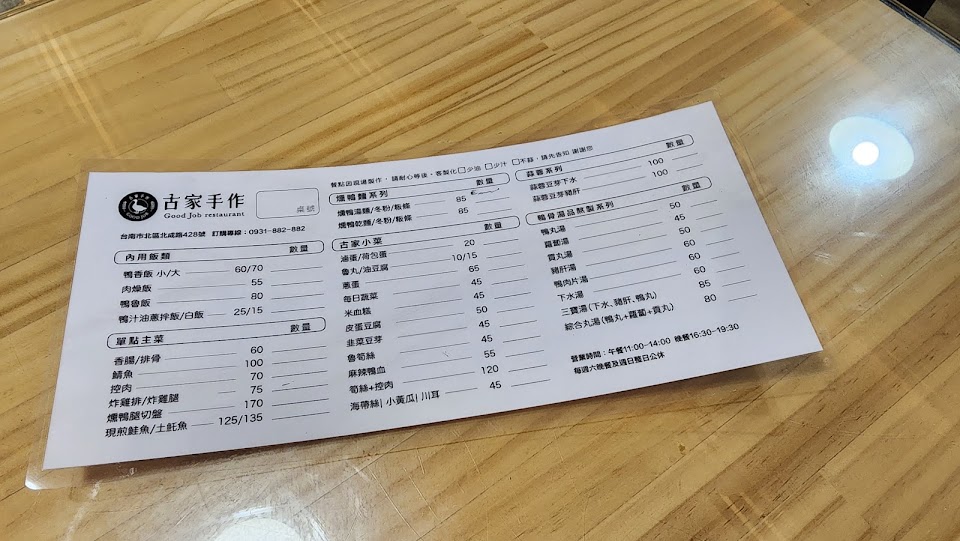 古家手作
Good Job restaurant
桌號
台南市北區北成路428號 訂購專線：0931-882-882
餐點因現場製作，請耐心等後、客製化□少油 □少汁 □不蒜，請先告知 謝謝您
內用飯類 數量
鴨香飯 小/大 60/70
肉燥飯 55
鴨魯飯 80
鴨汁油蔥拌飯/白飯 25/15
單點主菜 數量
香腸/排骨 60
鯖魚 100
控肉 70
炸雞排/炸雞腿 75
燻鴨腿切盤 170
現煎鮭魚/土魠魚 125/135
燻鴨麵系列 數量
燻鴨湯麵/冬粉/粄條 85
燻鴨乾麵/冬粉/粄條 85
古家小菜 數量
滷蛋/荷包蛋 20
魯丸/油豆腐 10/15
蔥蛋 65
每日蔬菜 45
米血糕 45
皮蛋豆腐 50
韭菜豆芽 45
魯筍絲 45
麻辣鴨血 55
筍絲+控肉 120
海帶絲| 小黃瓜| 川耳 45
蒜蓉系列 數量
蒜蓉豆芽下水 100
蒜蓉豆芽豬肝 100
鴨骨湯品熬製系列 數量
鴨丸湯 50
蘿蔔湯 45
貢丸湯 50
豬肝湯 60
鴨肉片湯 60
下水湯 60
三寶湯(下水、豬肝、鴨丸) 85
綜合丸湯(鴨丸+蘿蔔+貢丸) 80
營業時間：午餐11:00-14:00 晚餐16:30-19:30
每週六晚餐及週日整日公休